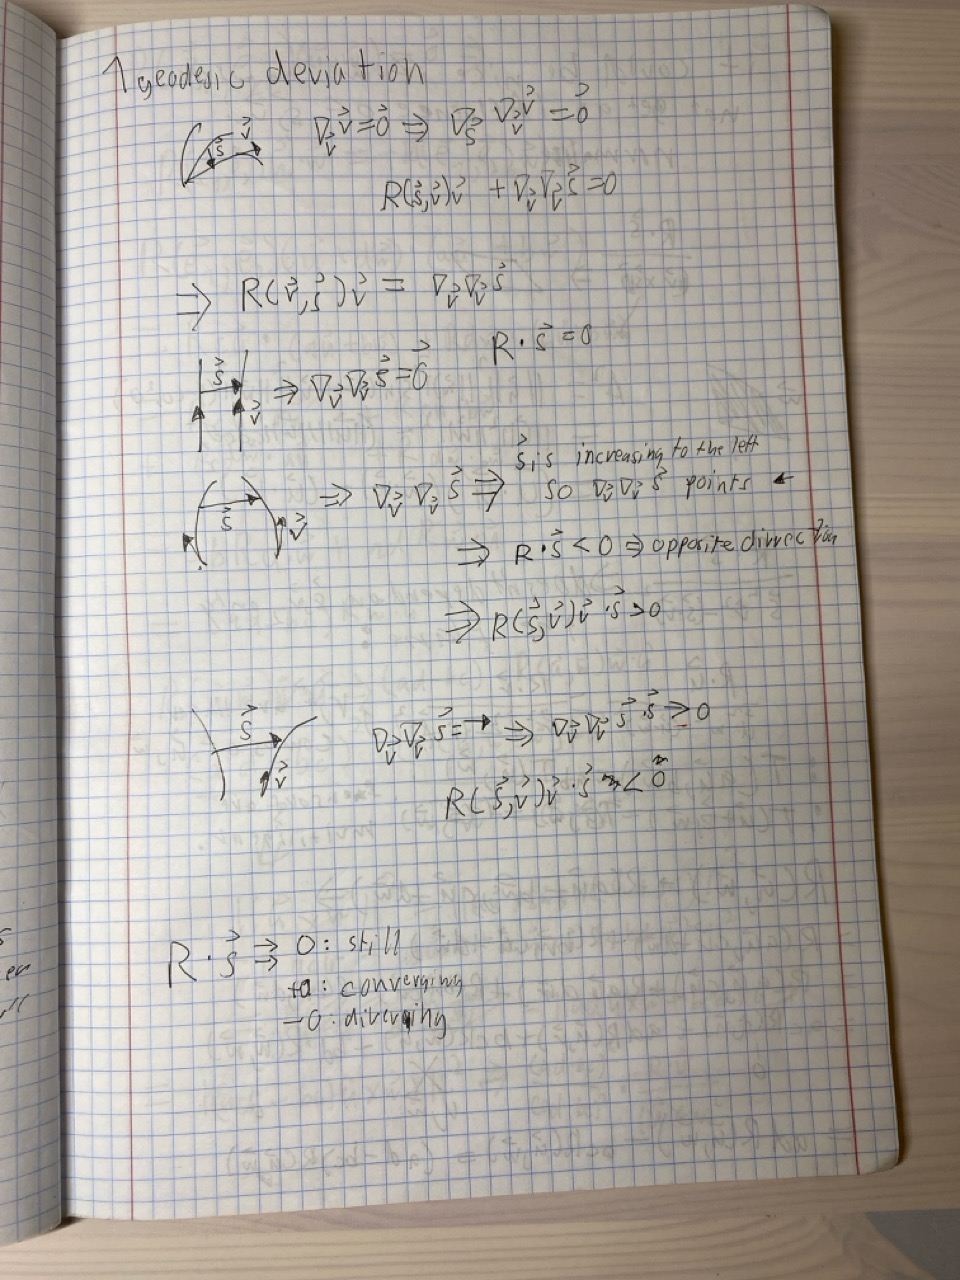 ↑ geodesic deviation
∇_v⃗ v⃗ = 0⃗ ⇒ ∇_s⃗ ∇_v⃗ v⃗ = 0⃗
s⃗ v⃗
R(s⃗,v⃗)v⃗ + ∇_v⃗ ∇_v⃗ s⃗ = 0
⇒ R(v⃗,s⃗)v⃗ = ∇_v⃗ ∇_v⃗ s⃗
R · s⃗ = 0
s⃗ v⃗ ⇒ ∇_v⃗ ∇_v⃗ s⃗ = 0⃗
s⃗ v⃗ ⇒ ∇_v⃗ ∇_v⃗ s⃗ ⇒ s⃗ is increasing to the left
so ∇_v⃗ ∇_v⃗ s⃗ points ←
⇒ R · s⃗ < 0 ⇒ opposite direction
⇒ R(s⃗,v⃗)v⃗ · s⃗ > 0
s⃗ v⃗ ∇_v⃗ ∇_v⃗ s⃗ = → ⇒ ∇_v⃗ ∇_v⃗ s⃗ · s⃗ > 0
R(s⃗,v⃗)v⃗ · s⃗ < 0
R · s⃗ ⇒ 0 : still
+a : converging
-0 : diverging